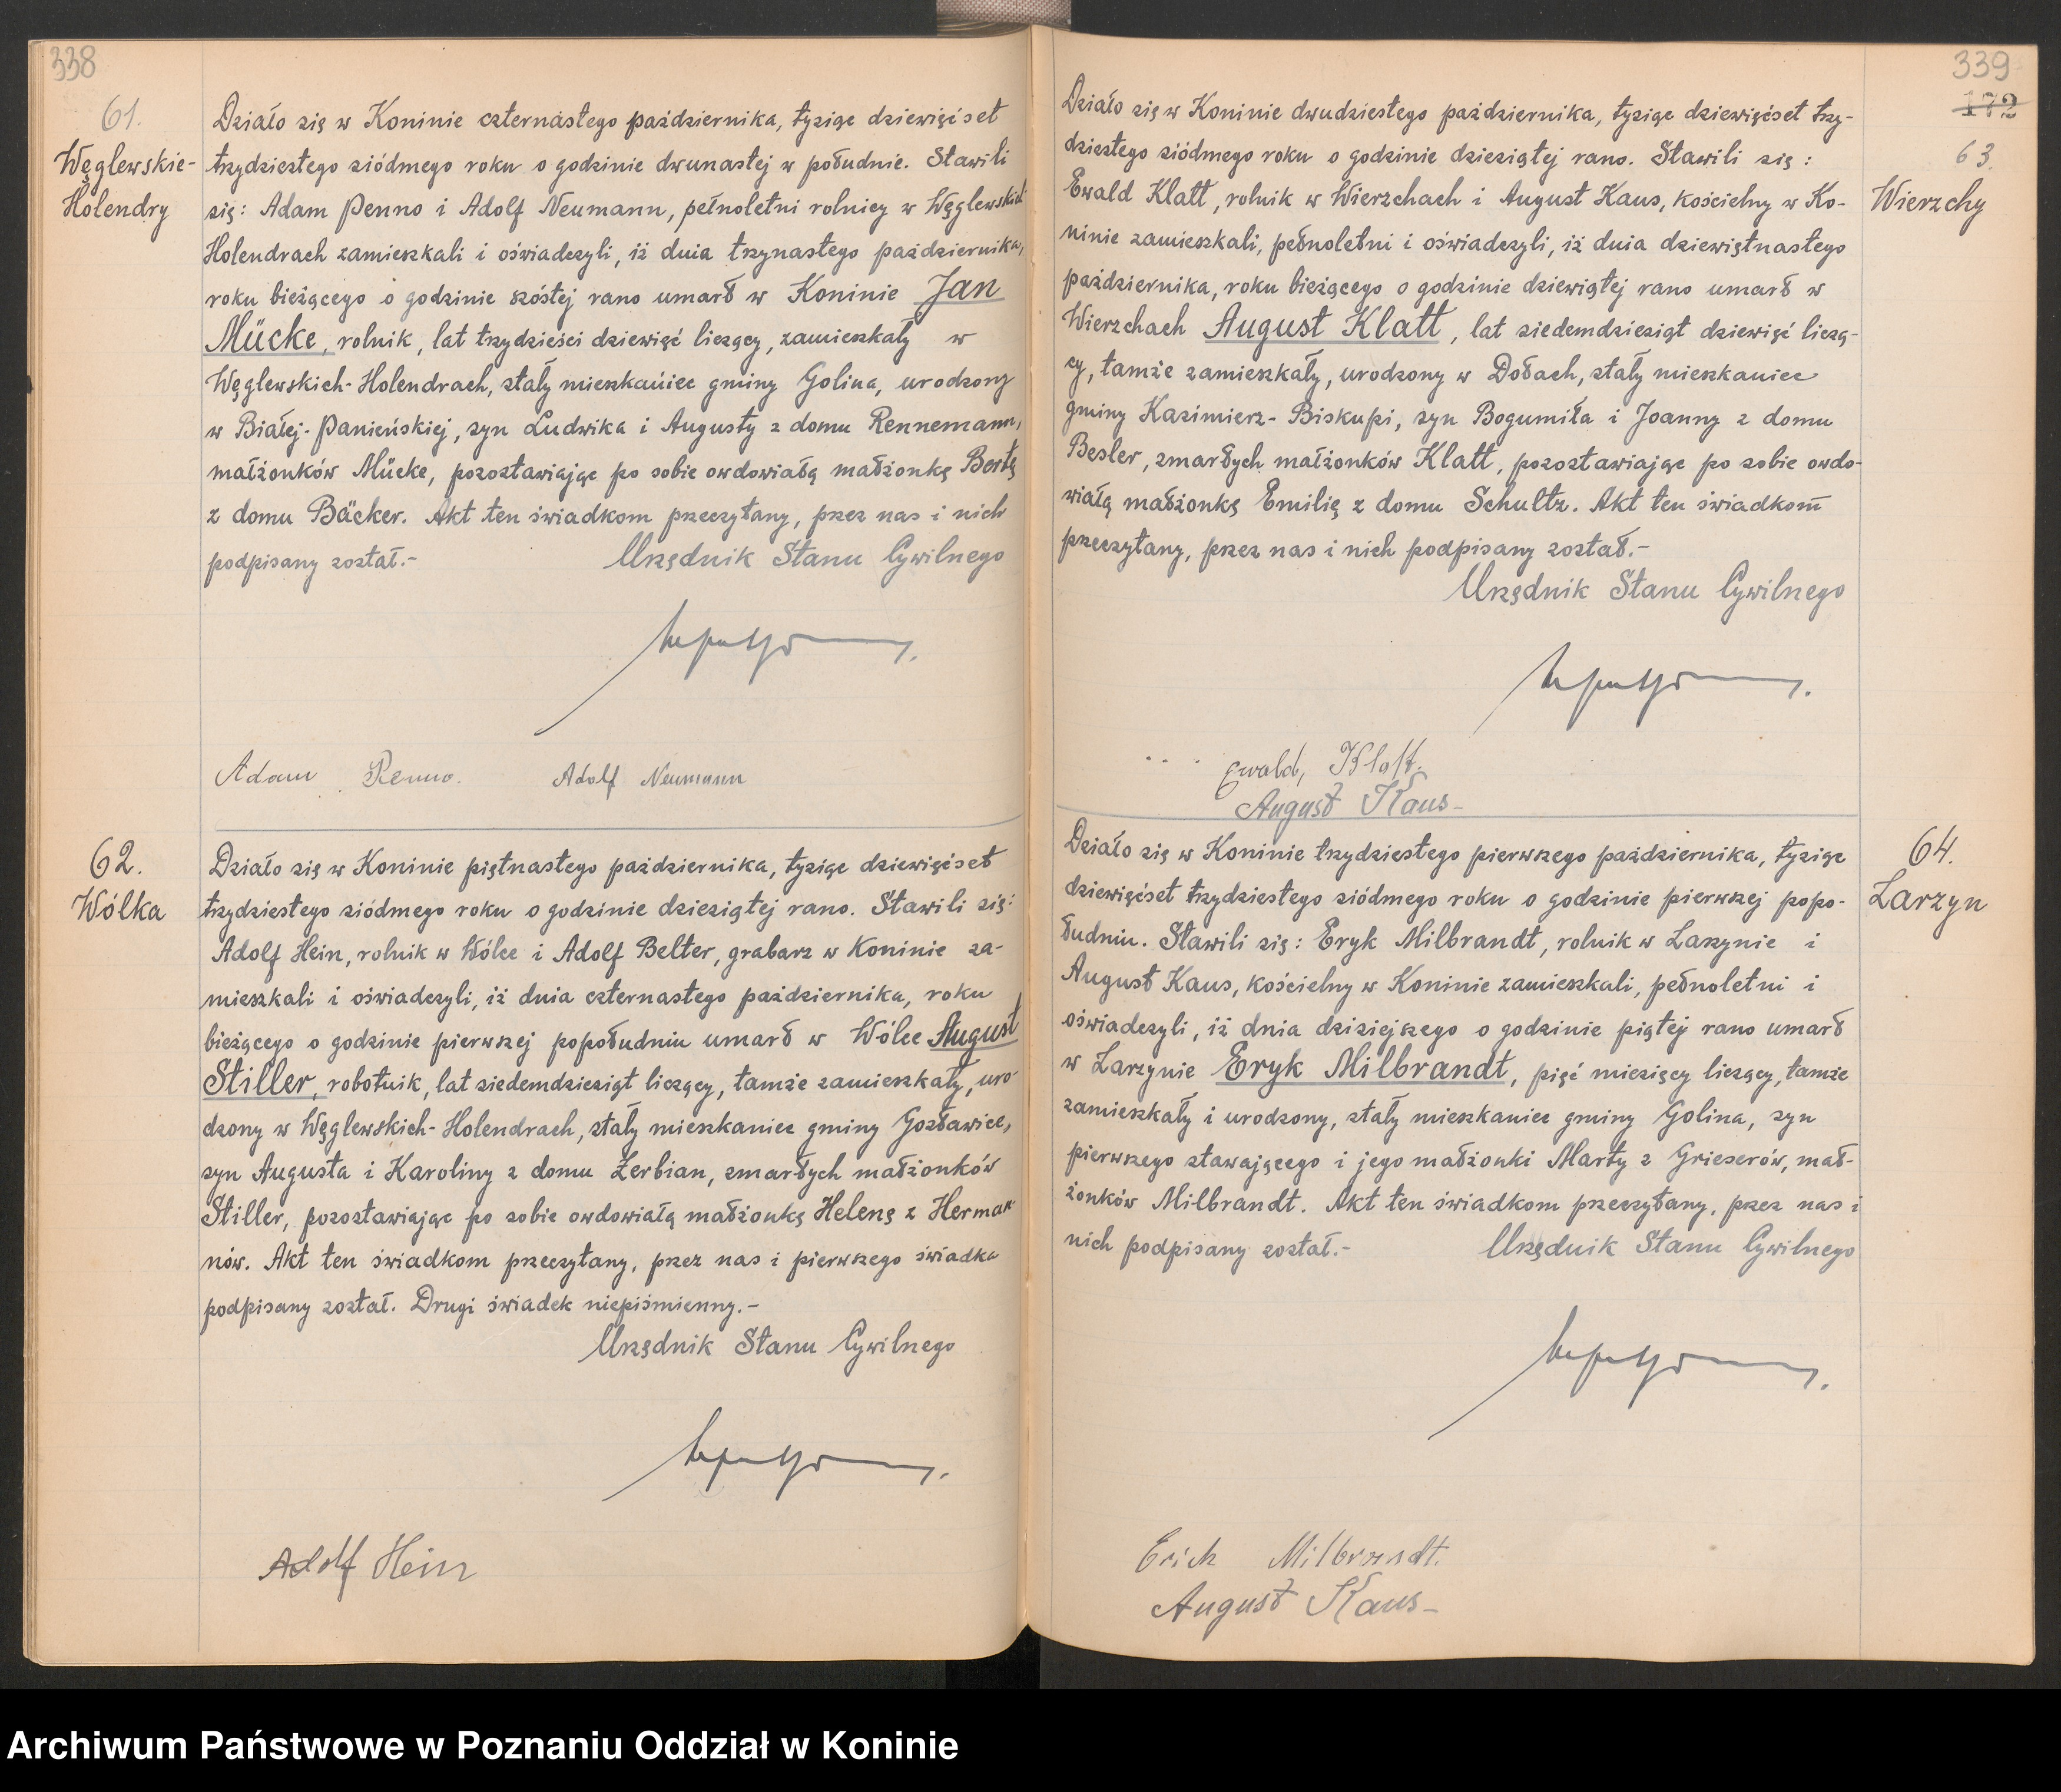 338
61.
Węglewskie-
Holendry
Działo się w Koninie czternastego października, tysiąc dziewięćset
trzydziestego siódmego roku o godzinie dwunastej w południe. Stawili
się: Adam Penno i Adolf Neumann, pełnoletni rolnicy w Węglewskich
Holendrach zamieszkali i oświadczyli, iż dnia trzynastego października,
roku bieżącego o godzinie szóstej rano umarł w Koninie Jan
Mücke, rolnik, lat trzydzieści dziewięć liczący, zamieszkały w
Węglewskich-Holendrach, stały mieszkaniec gminy Golina, urodzony
w Białej-Panieńskiej, syn Ludwika i Augusty z domu Rennemann,
małżonków Mücke, pozostawiając po sobie owdowiałą małżonkę Bertę
z domu Bäcker. Akt ten świadkom przeczytany, przez nas i nich
podpisany został.-
Urzędnik Stanu Cywilnego
Adam Penno.
Adolf Neumann
62.
Wólka
Działo się w Koninie piętnastego października, tysiąc dziewięćset
trzydziestego siódmego roku o godzinie dziesiątej rano. Stawili się:
Adolf Hein, rolnik w Wólce i Adolf Belter, grabarz w Koninie za-
mieszkali i oświadczyli, iż dnia czternastego października, roku
bieżącego o godzinie pierwszej popołudniu umarł w Wólce August
Stiller, robotnik, lat siedemdziesiąt liczący, tamże zamieszkały, uro-
dzony w Węglewskich-Holendrach, stały mieszkaniec gminy Gosławice,
syn Augusta i Karoliny z domu Zerbian, zmarłych małżonków
Stiller, pozostawiając po sobie owdowiałą małżonkę Helenę z Herma-
nów. Akt ten świadkom przeczytany, przez nas i pierwszego świadka
podpisany został. Drugi świadek niepiśmienny.-
Urzędnik Stanu Cywilnego
Adolf Hein
339
172
63.
Wierzchy
Działo się w Koninie dwudziestego października, tysiąc dziewięćset trzy-
dziestego siódmego roku o godzinie dziesiątej rano. Stawili się:
Ewald Klatt, rolnik w Wierzchach i August Kaus, kościelny w Ko-
ninie zamieszkali, pełnoletni i oświadczyli, iż dnia dziewiętnastego
października, roku bieżącego o godzinie dziewiątej rano umarł w
Wierzchach August Klatt, lat siedemdziesiąt dziewięć liczą-
cy, tamże zamieszkały, urodzony w Dołach, stały mieszkaniec
gminy Kazimierz-Biskupi, syn Bogumiła i Joanny z domu
Besler, zmarłych małżonków Klatt, pozostawiając po sobie owdo-
wiałą małżonkę Emilię z domu Schultz. Akt ten świadkom
przeczytany, przez nas i nich podpisany został.-
Urzędnik Stanu Cywilnego
Ewald, Klatt.
August Kaus-
64.
Larzyn
Działo się w Koninie trzydziestego pierwszego października, tysiąc
dziewięćset trzydziestego siódmego roku o godzinie pierwszej popo-
łudniu. Stawili się: Eryk Milbrandt, rolnik w Larzynie i
August Kaus, kościelny w Koninie zamieszkali, pełnoletni i
oświadczyli, iż dnia dzisiejszego o godzinie piątej rano umarł
w Larzynie Eryk Milbrandt, pięć miesięcy liczący, tamże
zamieszkały i urodzony, stały mieszkaniec gminy Golina, syn
pierwszego stawającego i jego małżonki Marty z Grieserów, mał-
żonków Milbrandt. Akt ten świadkom przeczytany, przez nas i
nich podpisany został.-
Urzędnik Stanu Cywilnego
Erich Milbrandt.
August Kaus-
Archiwum Państwowe w Poznaniu Oddział w Koninie